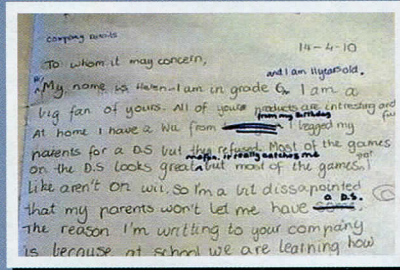 company Details
14-4-10
To whom it may concern,
and I am 11 years old.
My name is Haven-I am in grade 6. I am a
big fan of yours. All of your products are intresting and
fun
from my birthday
At home I have a Wii from I begged my
parents for a DS but they refused. Most of the games
on the D.S looks great but most of the games I
like aren't on wii. So I'm a bit dissapointed
a D.S.
that my parents won't let me have
The reason I'm writting to your company
is because at school we are learning how